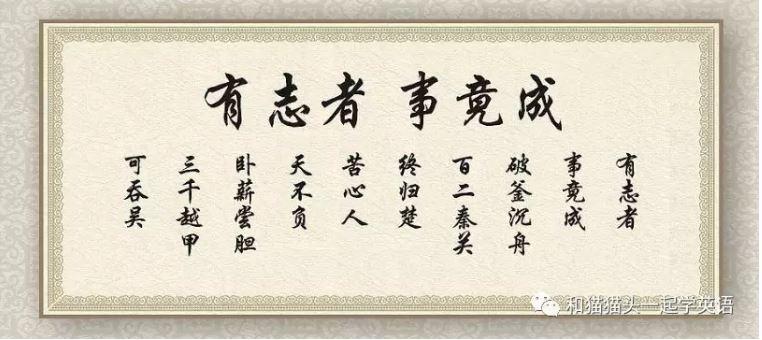 有志者 事竟成
有志者
事竟成
破釜沉舟
百二秦关
终归楚
苦心人
天不负
卧薪尝胆
三千越甲
可吞吴
和猫猫头一起学英语